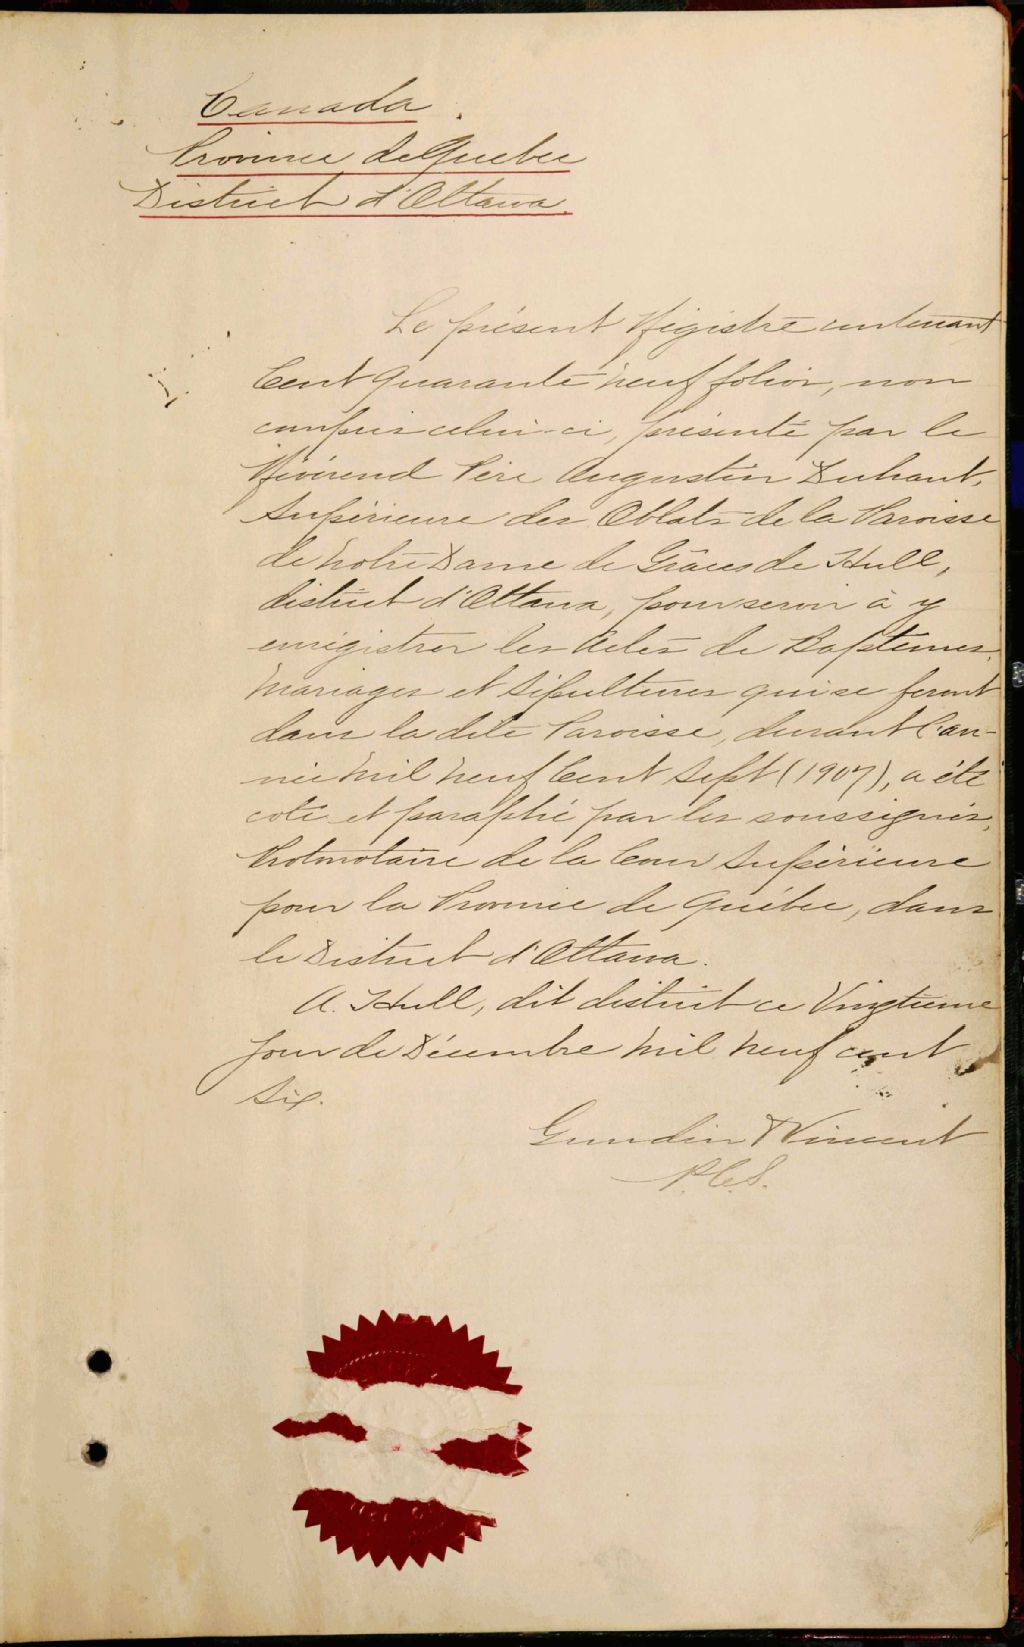 Canada
Province de Quebec
District d'Ottawa.
Le présent Régistre contenant
Cent Quarante neuf folios, non
compris celui-ci, présenté par le
Révérend Père Augustin Duhaut,
Supérieure des Oblats de la Paroisse
de Notre Dame de Grâces de Hull,
district d'Ottawa, pour servir à y
enrégistrer les Actes de Baptemes,
Mariages et Sépultures qui se feront
dans la dite Paroisse, durant l'an-
née Mil Neuf Cent Sept (1907), a été
coté et paraphé par les soussignés,
Protonotaire de la Cour Supérieure
pour la Province de Québec, dans
le District d'Ottawa.
A. Hull, dit district ce Vingtieme
jour de Décembre Mil Neuf cent
Six.
& Vincent
P.C.S.